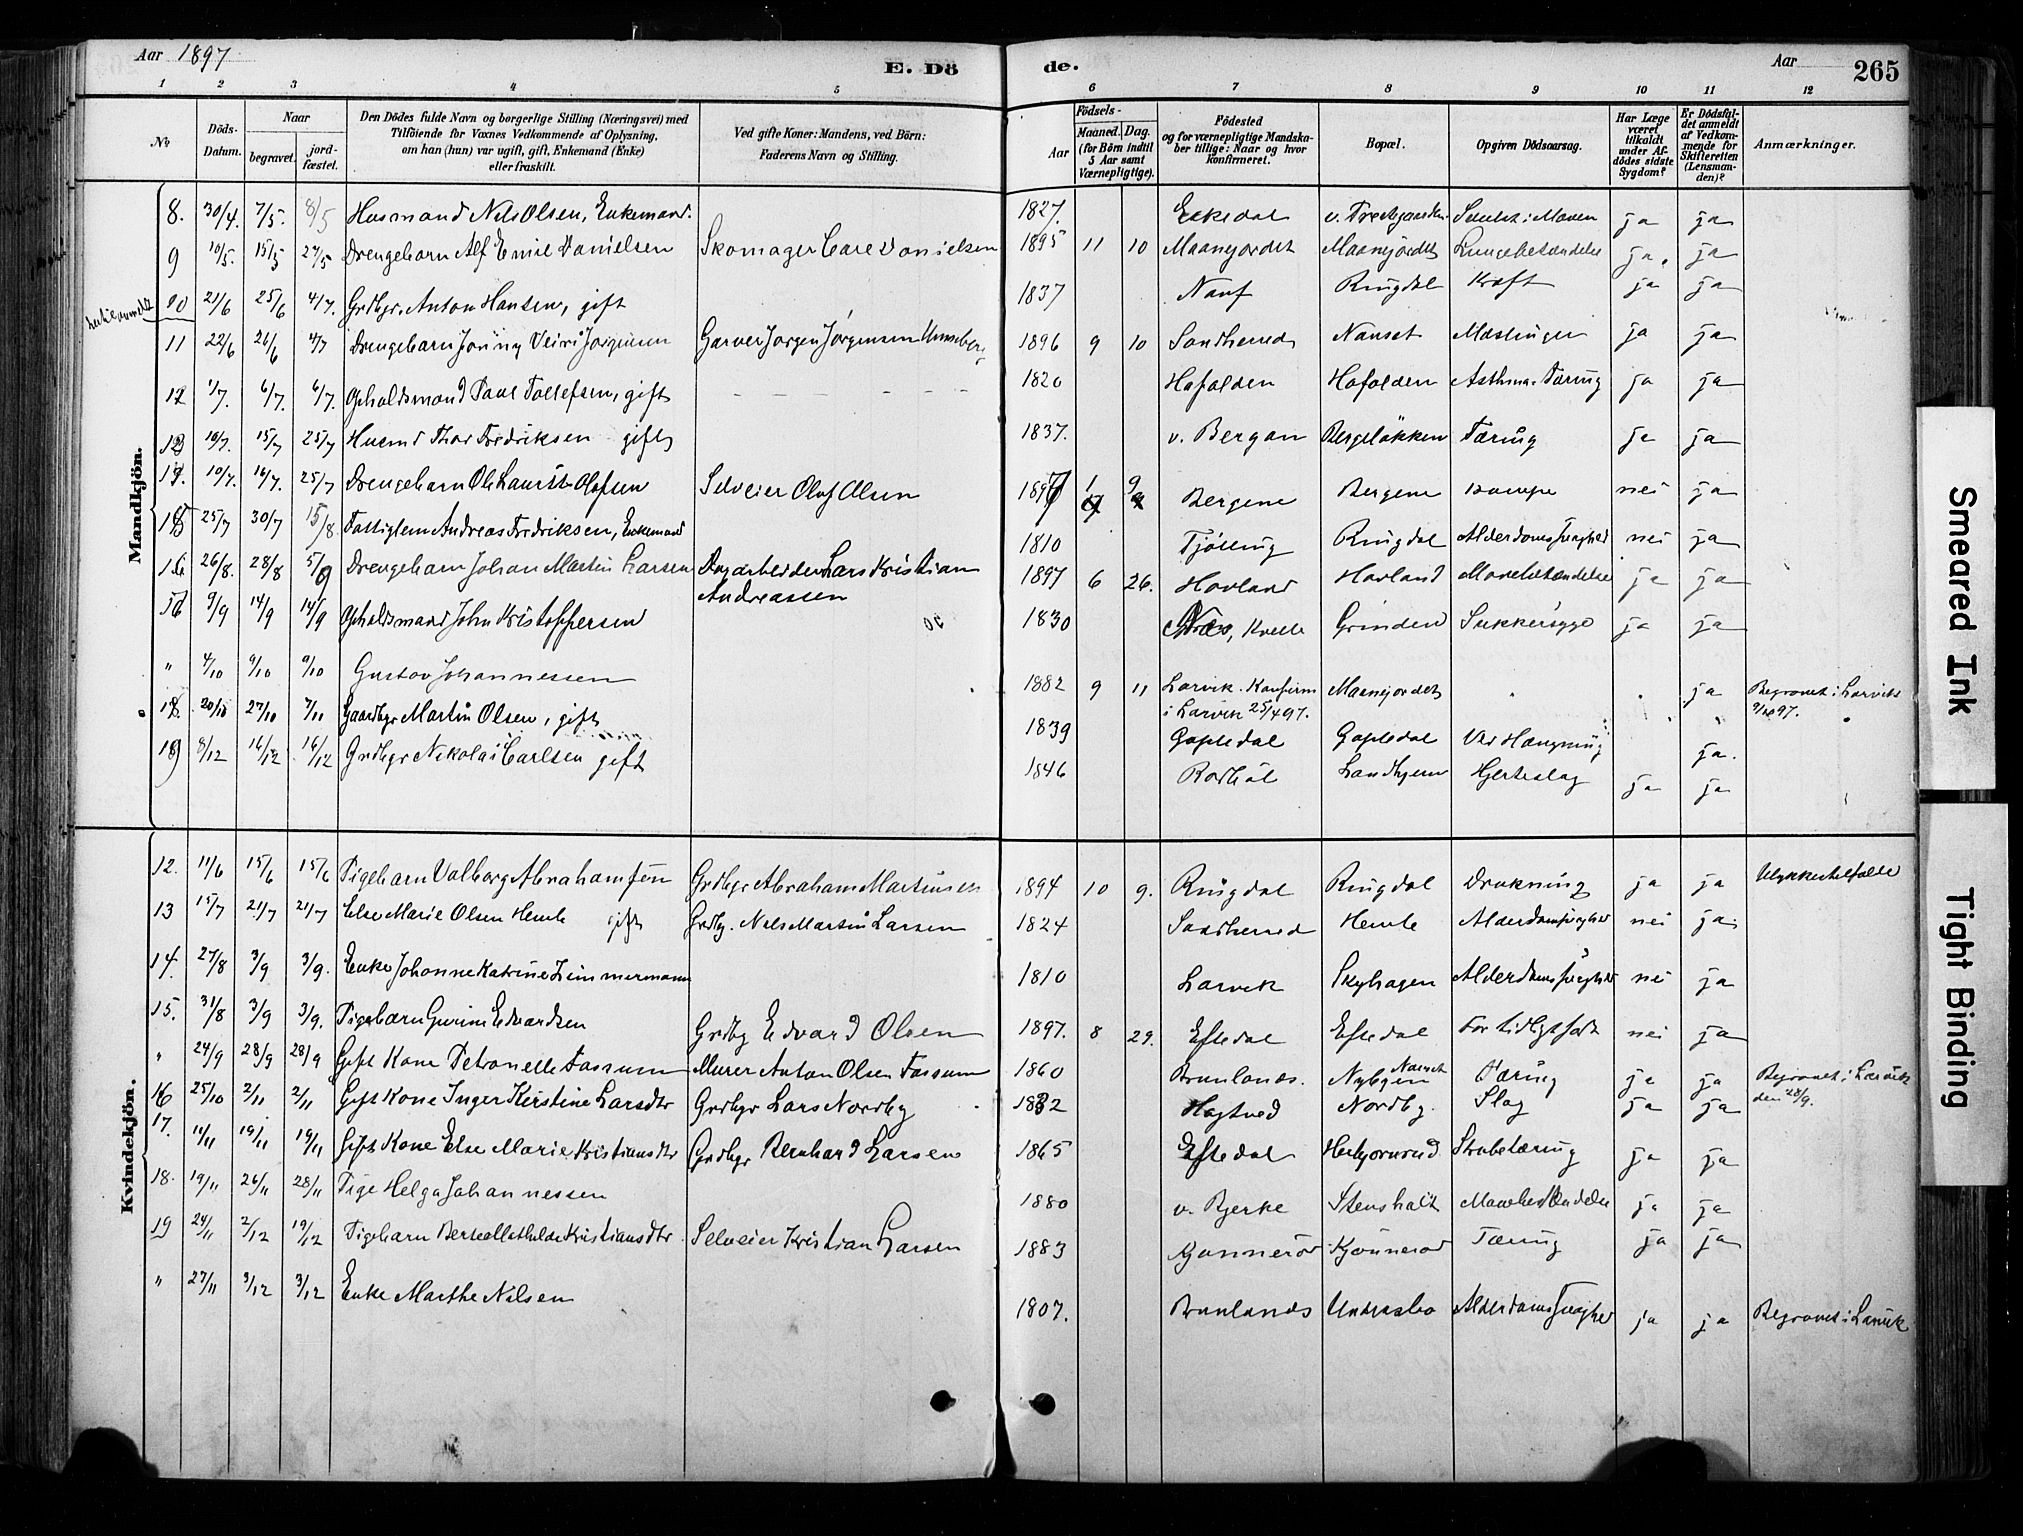 Aar 1897 E. Dö de. Aar 265
1 2 3 4 5 6 7 8 9 10 11 12
No Döds-Datum. Naar begravet. jordfæstet. Den Dödes fulde Navn og borgerlige Stilling (Næringsvei) med Tilföiende for Voxnes Vedkommende af Oplysning, om han (hun) var ugift, gift, Enkemand (Enke) eller fraskilt. Ved gifte Koner: Mandens, ved Börn: Faderens Navn og Stilling. Födsels- Aar Maaned. Dag. (for Börn indtil 5 Aar samt Værnepligtige). Födested og for værnepligtige Mandskaber tillige: Naar og hvor Konfirmeret. Bopæl. Opgiven Dödsaarsag. Har Læge været tilkaldt under Afdödes sidste Sygdom? Er Dödsfaldet anmeldt af Vedkommende for Skifteretten (Lensmanden)? Anmærkninger.
Mandkjön.
8. 30/4. 7/5. 8/5 Husmand Nils Olsen, Enkemand. 1827. ja ja
9 10/5. 15/5 27/5 Drengebarn Alf Emil Danielsen Skomager Carl Danielsen 1895 11 10 Maanejordet Maanejordet Lungebetændelse ja. ja
10 21/6 25/6 4/7. Grdbgr. Anton Hansen, gift 1837 Ringdal Kræft ja ja
11 22/6 26/6 4/7 Drengebarn Garver Jørgen Jørgensen 1896 9 10 Sandherred Nanset Mæslinger ja ja
12 1/7. 6/7. 6/7. Opholdsmand Paul Tollefsen, gift 1820 Hafalden Hafalden Asthma. Tæring ja ja
13 10/7. 15/7 25/7 Husmd Thor Fredriksen gift 1837. v. Bergan Bergeløkken Tæring ja ja
14. 10/7. 16/7. 25/7 Drengebarn Ole Laurits Olafsen Selveier Olaf Olsen 1897 1 9 Bergene Bergene Krampe nei ja
15 25/7 30/7 15/8 Fattiglem Andreas Fredriksen, Enkemand 1810 Tjølling Ringdal Alderdomssvaghed nei ja
16 26/8. 28/8 5/9 Drengebarn Johan Martin Larsen Dagarbeider Lars Kristian Andreassen 1897 6 26. Hovland Hovland Mavebetændelse ja ja
9/9 14/9 14/9 Opholdsmand John Kristoffersen 1830 Kvelle Grinden Sukkersyge ja ja
" 4/10 9/10 9/10 Gustav Johannessen 1882 9 11 Larvik. Konfirm. i Larvik 25/4 97. Maanejordet ja Begravet i Larvik 9/10 97.
18. 20/10 27/10 7/11 Gaardbgr Martin Olsen, gift 1839 Gopledal Gopledal Ved Hængning ja.
19 8/12 16/12 16/12 Grdbgr Nikolai Carlsen gift 1846 Landhjem Hjerteslag ja ja
Kvindekjön.
12. 11/6 15/6 15/6 Pigebarn Valborg Abrahamsen Grdbgr Abraham Martinsen 1894 10 9. Ringdal Ringdal Drukning ja ja Ulykkestilfælde
13 15/7 21/7 21/7 Else Marie Olsen Hemle gift Grdbg. Nils Martin Larsen 1824 Sandherred Hemle Alderdomssvaghed nei ja
14. 27/8 3/9 3/9. Enke Johanne Katrine Zimmermann 1810 Larvik Skyhagen Alderdomssvaghed nei ja
15. 31/8 3/9 3/9. Pigebarn Edvardsen Grdbg Edvard Olsen 1897. 8 29. Eftedal Eftedal For tidligt født nei ja
" 24/9 28/9 28/9 Gift Kone Petronelle Fossum Murer Anton Olsen Fossum 1860 Brunlands. Nybyen Nanset Tæring ja ja Begravet i Larvik den 28/9.
16 25/10 2/11 2/11 Gift Kone Inger Kirstine Larsdtr Grdbgr Lars Nordby 1832 Hagtved Nordby. Slag ja ja
17. 11/11 19/11 19/11 Gift Kone Else Marie Kristiansdtr Grdbgr Bernhard Larsen 1865 Eftedal Strubetæring ja ja
18. 19/11 26/11 28/11 Pige Helga Johannessen 1880 v. Bjerke Stensholt Mavebetændelse ja ja
19 24/11 2/12 19/12 Pigebarn Kristiansdtr Selveier Kristian Larsen 1883 Gjønnerød Kjønnerød Tæring ja ja
" 27/11 3/12 3/12 Enke Marthe Nilsen 1807. Brunlands Alderdomssvaghed ja ja Begravet i Larvik
Smeared Ink
Tight Binding